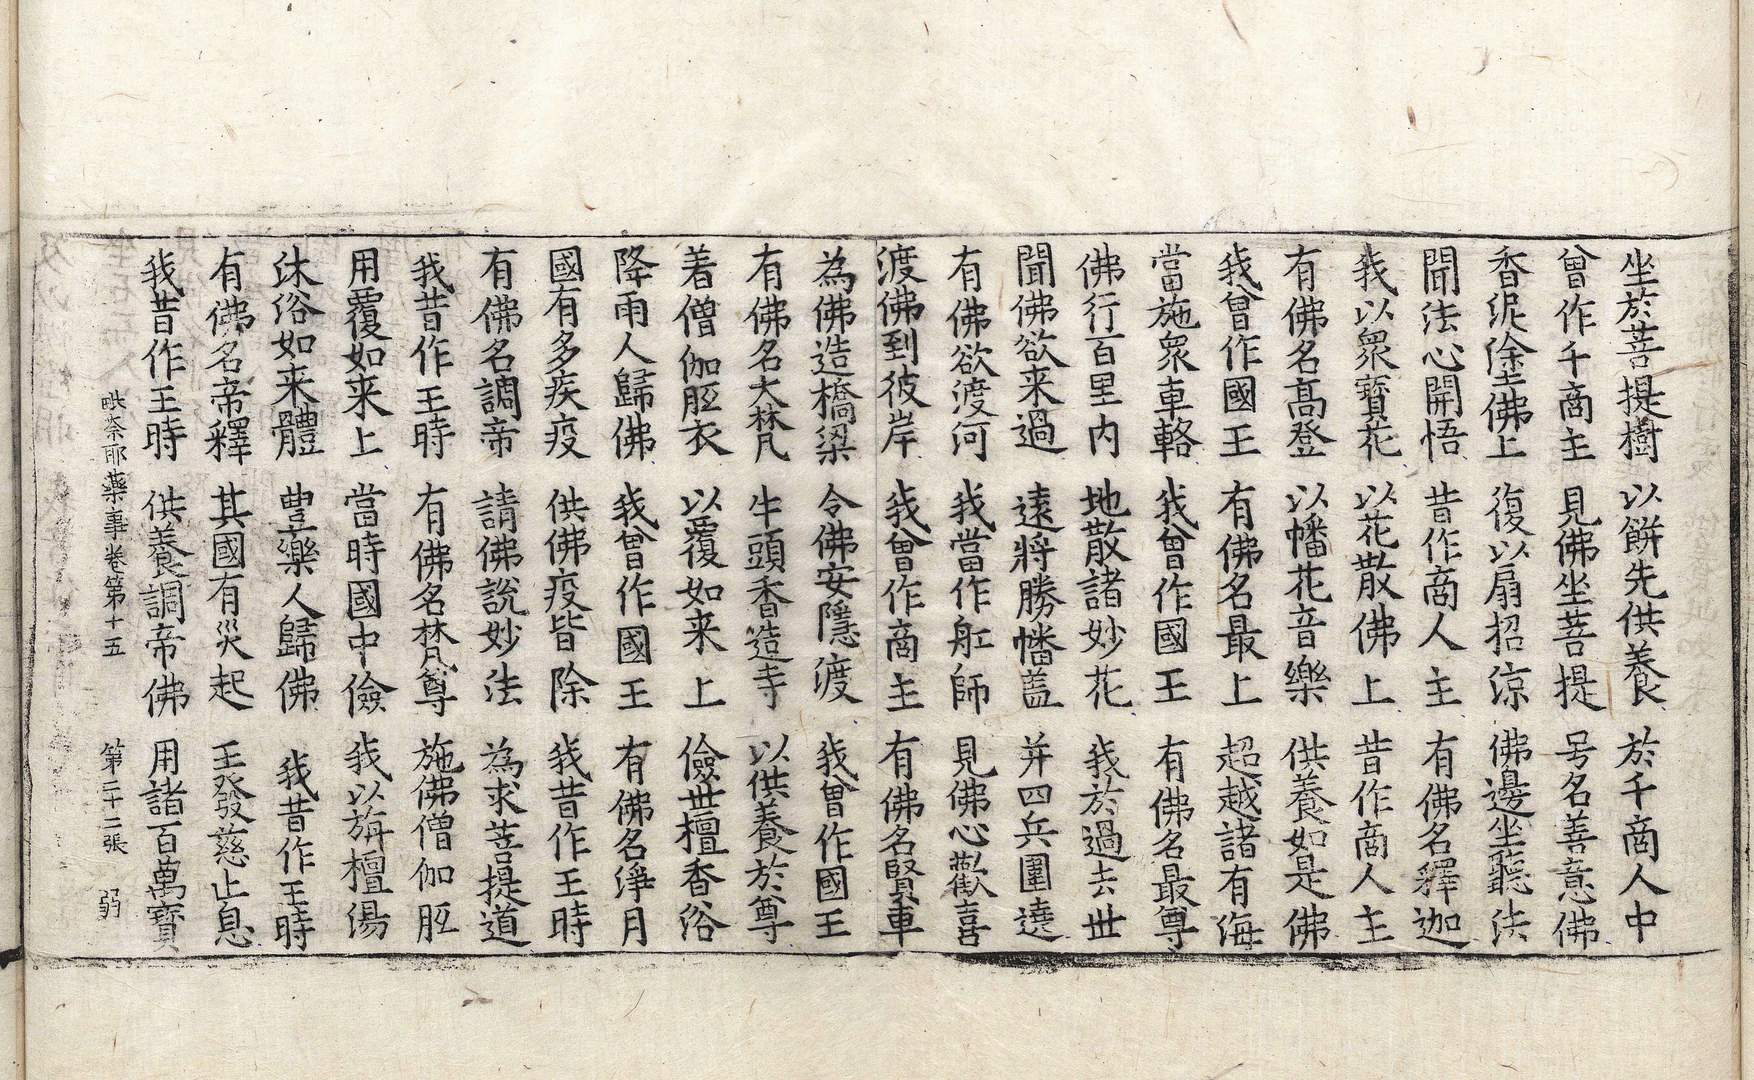 坐於菩提樹 以餅先供養 於千商人中
曾作千商主 見佛坐菩提 号名善意佛
香泥塗佛上 復以扇招涼 佛邊坐聽法
聞法心開悟 昔作商人主 有佛名釋迦
我以衆寶花 以花散佛上 昔作商人主
有佛名高登 以幡花音樂 供養如是佛
我曾作國王 有佛名最上 超越諸有海
當施衆車輅 我曾作國王 有佛名最尊
佛行百里内 地散諸妙花 我於過去世
聞佛欲来過 遠將勝幡蓋 并四兵圍遶
有佛欲渡河 我當作舡師 見佛心歡喜
渡佛到彼岸 我曾作商主 有佛名賢車
為佛造橋梁 令佛安隱渡 我曾作國王
有佛名大梵 牛頭香造寺 以供養於尊
着僧伽胝衣 以覆如来上 儉世檀香浴
降雨人歸佛 我曾作國王 有佛名淨月
國有多疾疫 供佛疫皆除 我昔作王時
有佛名調帝 請佛說妙法 為求菩提道
我昔作王時 有佛名梵尊 施佛僧伽胝
用覆如来上 當時國中儉 我以旃檀湯
沐浴如来體 豊樂人歸佛 我昔作王時
有佛名帝釋 其國有災起 王發慈止息
我昔作王時 供養調帝佛 用諸百萬寶
毗奈耶藥事卷第十五 第二十二張 弱